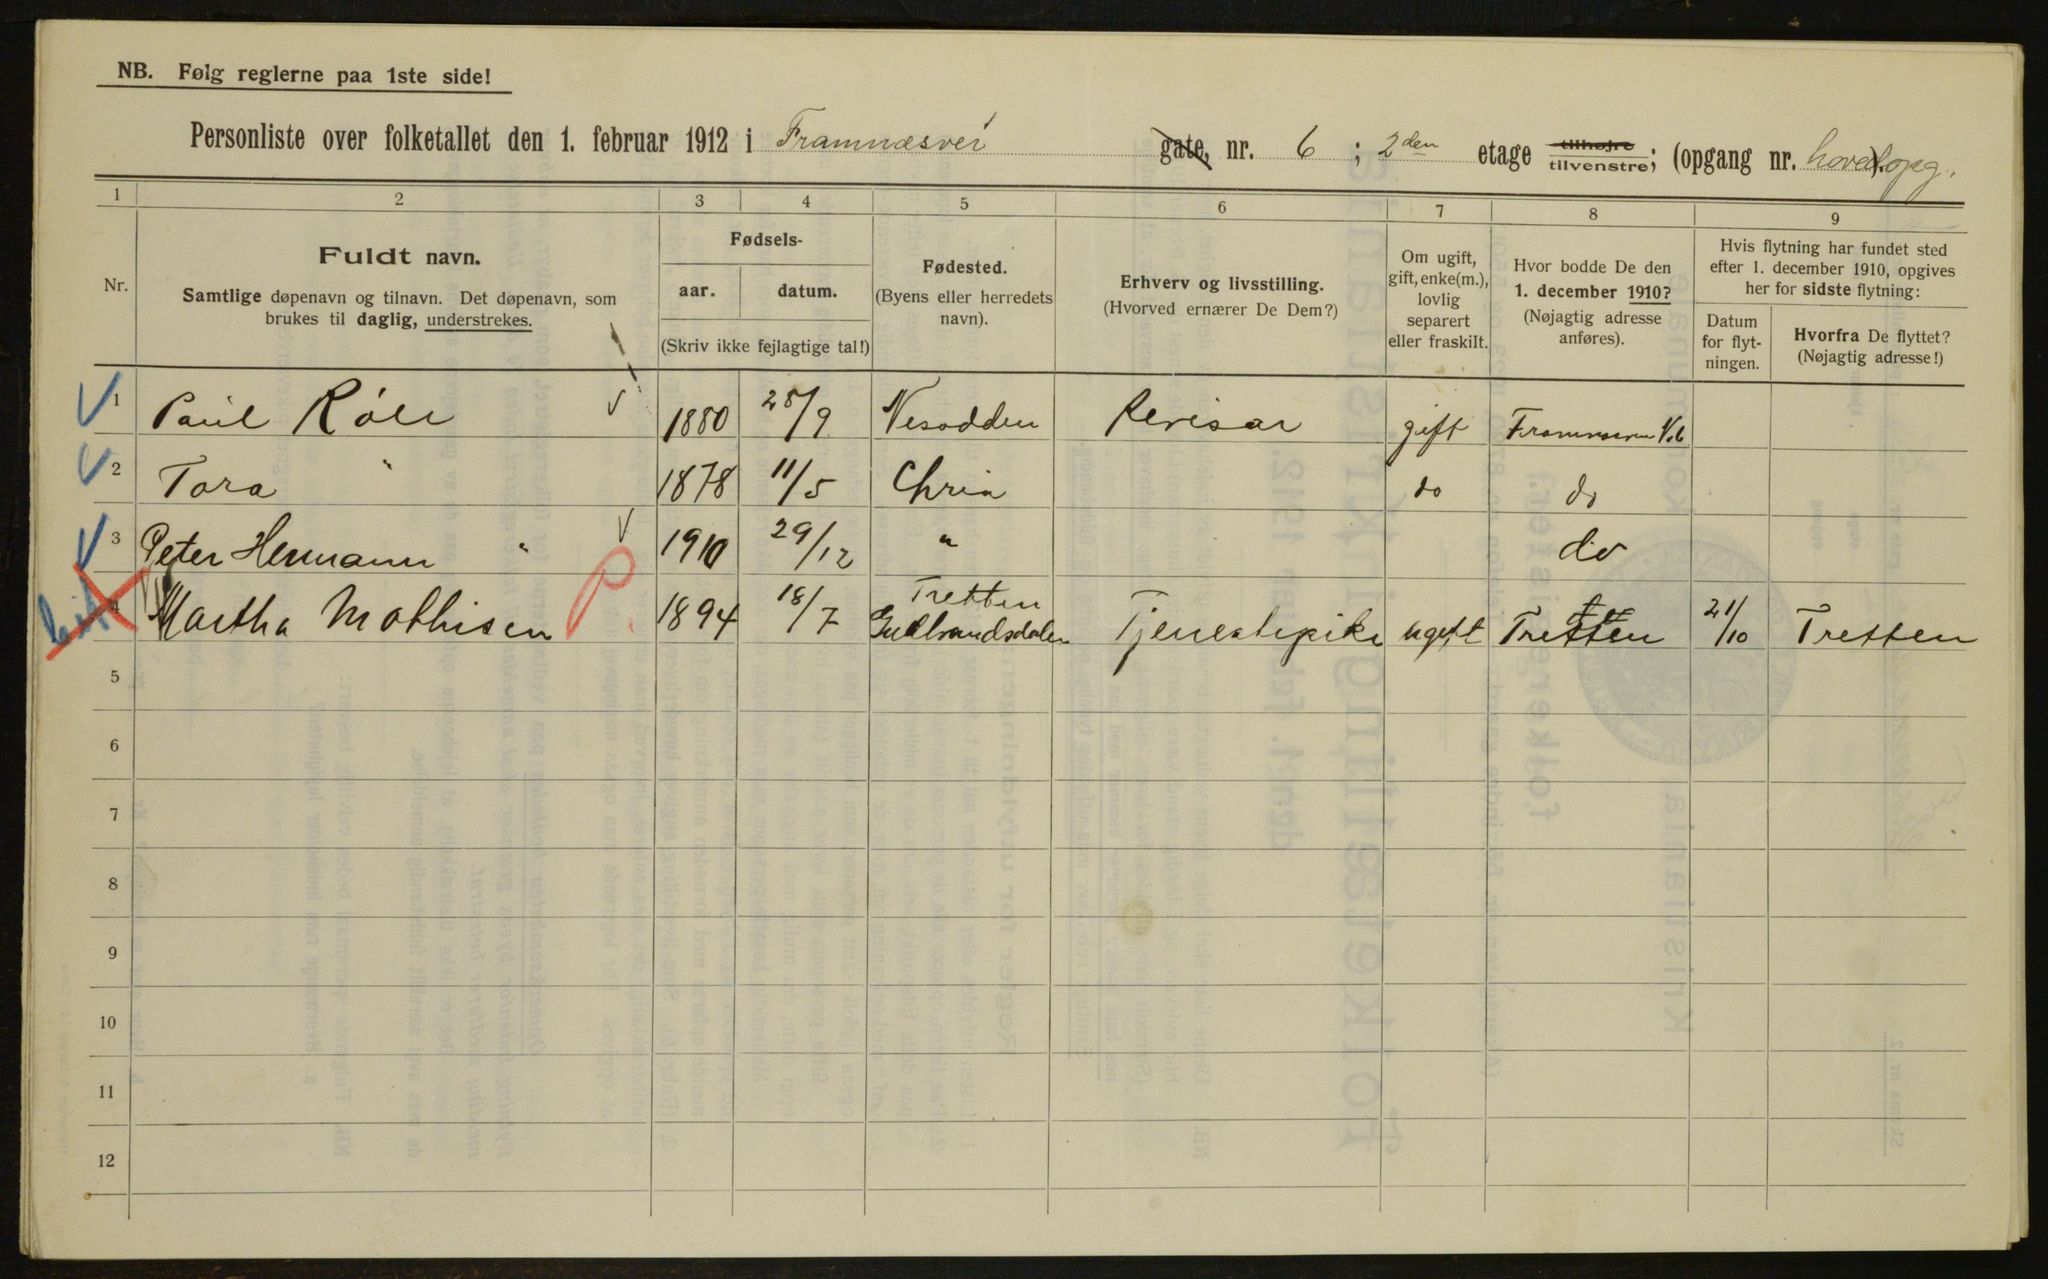 NB. Følg reglerne paa 1ste side!
Personliste over folketallet den 1. februar 1912 i Framnæsvei gate, nr. 6 ; 2den etage tilhøjre tilvenstre; (opgang nr. hovedopg.
1 2 3 4 5 6 7 8 9
Nr.
Fuldt navn.
Samtlige døpenavn og tilnavn. Det døpenavn, som
brukes til daglig, understrekes.
Fødsels-
aar. datum.
(Skriv ikke fejlagtige tal!)
Fødested.
(Byens eller herredets
navn).
Erhverv og livsstilling.
(Hvorved ernærer De Dem?)
Om ugift,
gift, enke(m.),
lovlig
separert
eller fraskilt.
Hvor bodde De den
1. december 1910?
(Nøjagtig adresse
anføres).
Hvis flytning har fundet sted
efter 1. december 1910, opgives
her for sidste flytning:
Datum
for flyt-
ningen.
Hvorfra De flyttet?
(Nøjagtig adresse!)
1 Paul 1880 28/9 Nesodden Revisor gift V. 6
2 Tora " 1878 11/5 Chria do do
3 Peter Hermann " 1910 29/12 " do
4 Martha Mathisen 1894 18/7 Tretten Gudbrandsdalen Tjenestepike ugift Tretten 21/10 Tretten
5
6
7
8
9
10
11
12